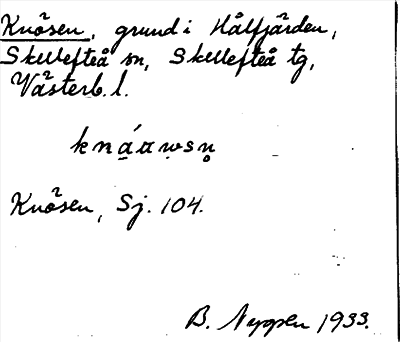 Knösen, grund i Hålfjärden,
Skellefteå sn, Skellefteå tg,
Västerb. l.
knáawsn
Knösen, Sj. 104.
B. Nygren 1933.